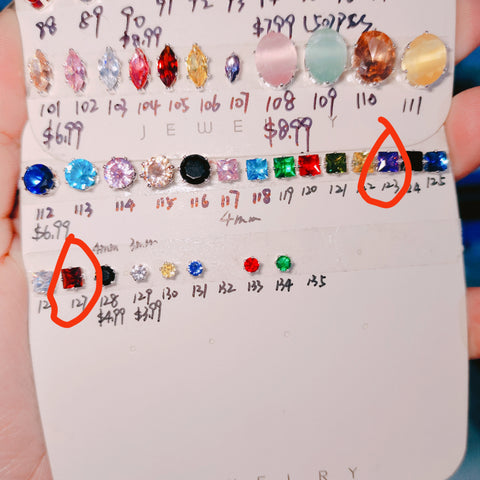 88 89 90
$8.99 $7.99 USD/PCS
101 102 103 104 105 106 107 108 109 110 111
$6.99 $8.99
JEWE Y
112 113 114 115 116 117 118 119 120 121 122 123 124 125
$6.99 4mm
4mm 3mm
127 128 129 130 131 132 133 134 135
$4.99 $3.99
ELRY